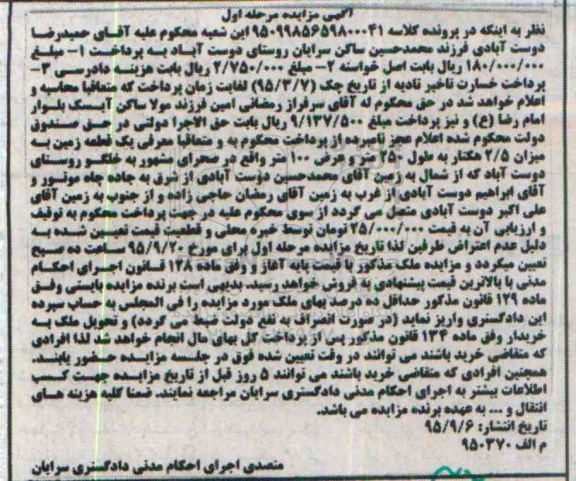 آگهی مزایده مرحله اول
نظر به اینکه در پرونده کلاسه ۹۵۰۹۹۸۵۶۵۹۸۰۰۰۴۱ این شعبه محکوم علیه آقای حمیدرضا
دوست آبادی فرزند محمدحسین ساکن سرایان روستای دوست آباد به پرداخت ۱- مبلغ
۱۸۰/۰۰۰/۰۰۰ ریال بابت اصل خواسته ۲- مبلغ ۲/۷۵۰/۰۰۰ ریال بابت هزینه دادرسی ۳-
پرداخت خسارت تاخیر تادیه از تاریخ چک (۹۵/۳/۷) لغایت زمان پرداخت که متعاقبا محاسبه و
اعلام خواهد شد در حق محکوم له آقای سرفراز رمضانی امین فرزند مولا ساکن آیسک بلوار
امام رضا (ع) و نیز پرداخت مبلغ ۹/۱۳۷/۵۰۰ ریال بابت حق الاجرا دولتی در حق صندوق
دولت محکوم شده اعلام عجز نامبرده از پرداخت محکوم به و متعاقبا معرفی یک قطعه زمین به
میزان ۲/۵ هکتار به طول ۲۵۰ متر و عرض ۱۰۰ متر واقع در صحرای مشهور به خلگو روستای
دوست آباد که از شمال به زمین آقای محمدحسن دوست آبادی از شرق به جاده چاه موتور و
آقای ابراهیم دوست آبادی از غرب به زمین آقای رمضان حاجی زاده و از جنوب به زمین آقای
علی اکبر دوست آبادی متصل می گردد از سوی محکوم علیه در جهت پرداخت محکوم به توقیف
و ارزیابی آن به قیمت ۲۵/۰۰۰/۰۰۰ تومان توسط خبره محلی و قطعیت قیمت تعیین شده به
دلیل عدم اعتراض طرفین لذا تاریخ مزایده مرحله اول برای مورخ ۹۵/۹/۲۰ ساعت ده صبح
تعیین میگردد و مزایده ملک مذکور با قیمت پایه آغاز و وفق ماده ۱۲۸ قانون اجرای احکام
مدنی با بالاترین قیمت پیشنهادی به فروش خواهد رسید. بدیهی است برنده مزایده بایستی وفق
ماده ۱۲۹ قانون مذکور حداقل ده درصد بهای ملک مورد مزایده را فی المجلس به حساب سپرده
این دادگستری واریز نماید (در صورت انصراف به نفع دولت ضبط می گردد) و تحویل ملک به
خریدار وفق ماده ۱۳۴ قانون مذکور پس از پرداخت کل بهای مال انجام خواهد شد لذا افرادی
که متقاضی خرید باشند می توانند در وقت تعیین شده فوق در جلسه مزایده حضور یابند.
همچنین افرادی که متقاضی خرید باشند می توانند ۵ روز قبل از تاریخ مزایده جهت کسب
اطلاعات بیشتر به اجرای احکام مدنی دادگستری سرایان مراجعه نمایند. ضمنا کلیه هزینه های
انتقال و ... به عهده برنده مزایده می باشد.
تاریخ انتشار: ۹۵/۹/۶
م الف ۹۵۰۳۷۰
متصدی اجرای احکام مدنی دادگستری سرایان